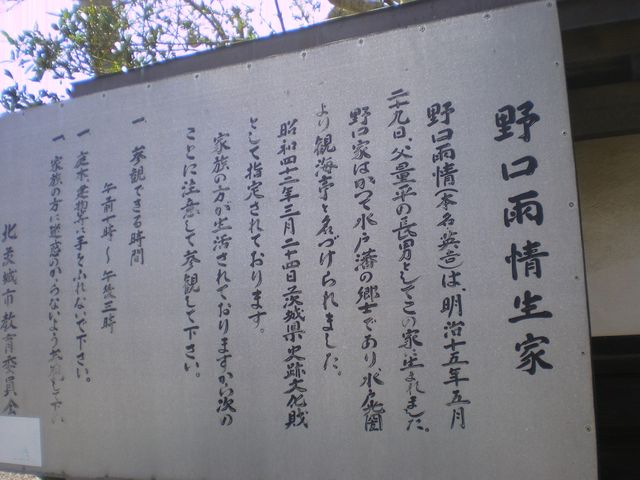 野口雨情生家
野口雨情(本名英吉)は、明治十五年五月
二十九日、父量平の長男としてこの家に生まれました。
野口家はかつて水戸藩の郷士であり水戸藩
より観海亭と名づけられました。
昭和四十二年三月二十四日茨城県史跡文化財
として指定されております。
家族の方が生活されておりますから次の
ことに注意して参観して下さい。
一、参観できる時間
午前一時〜午後三時
一、庭木、建物等に手をふれないで下さい。
一、家族の方に迷惑のかからないようお願して下い
北茨城市教育委員会